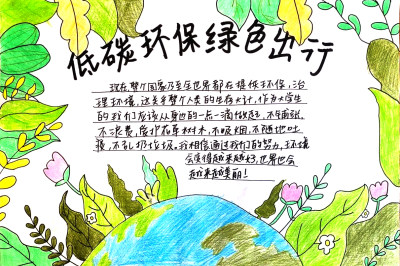 低碳环保绿色出行
现在整个国家乃至全世界都在提倡环保,治
理环境,这关乎整个人类的生存大计,作为大学生
的我们应该从身边的一点一滴做起,不铺张、
不浪费,爱护花草树木,不吸烟,不随地吐
痰,不乱扔垃圾。我相信通过我们的努力,环境
会变得越来越好,世界也会
越来越美丽!